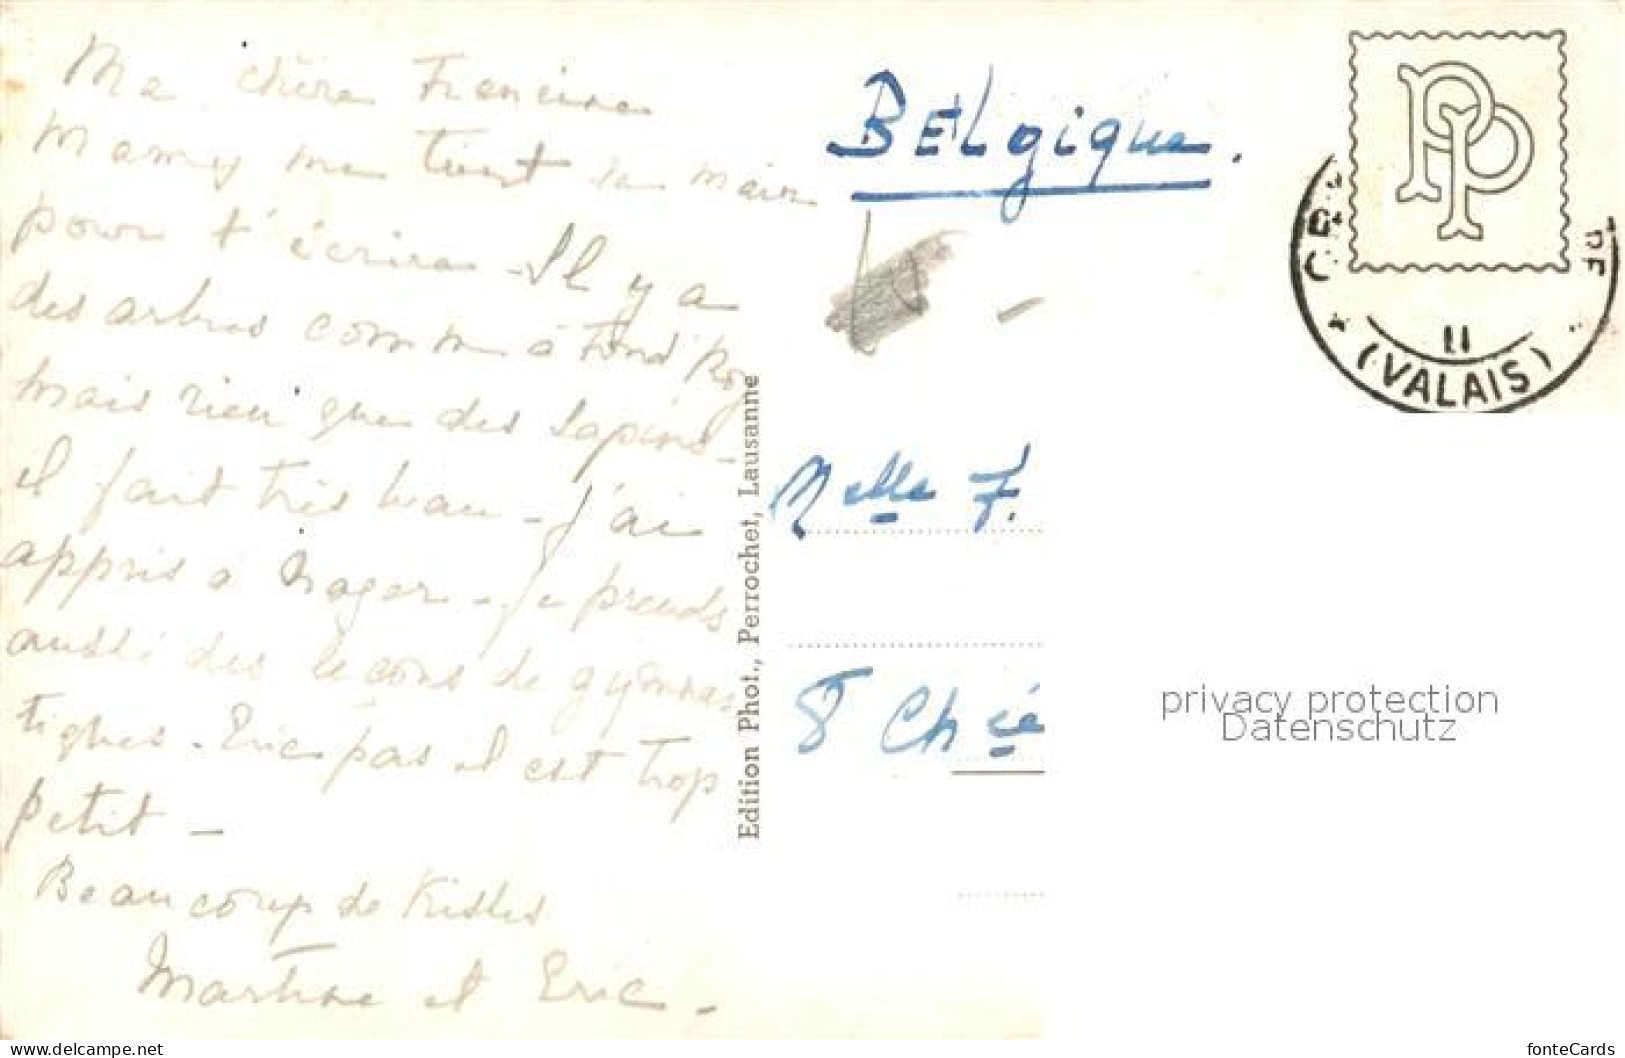 Ma chère Francine
Mamy me tient la main
pour t'écrire - Il y a
des arbres comme à Fond'Roy
mais rien que des sapins -
il fait très beau - J'ai
appris à nager - Je prends
aussi des leçons de gymnas-
tiques - Eric pas il est trop
petit -
Beaucoup de Kisses
Martine et Eric -
Edition Phot., Perrochet, Lausanne
BELgique.
PP
II
(VALAIS)
Melle F.
8 Ch ée
privacy protection
Datenschutz
https://www.delcampe.net
fonteCards